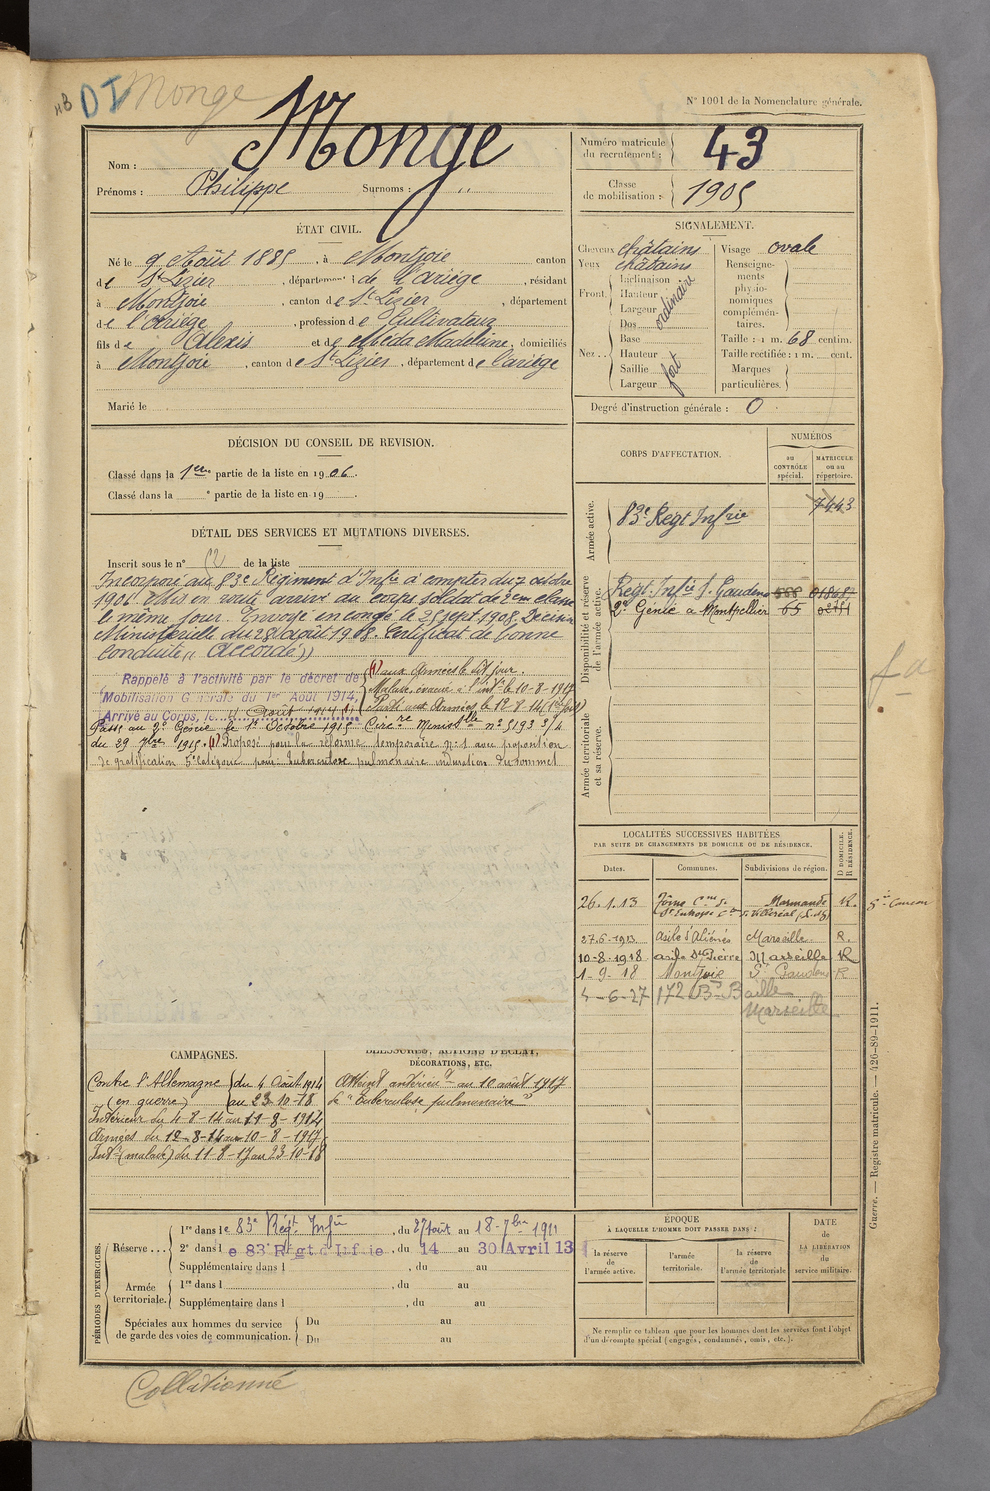 DI Monge
N° 1001 de la Nomenclature générale.
Nom : Monge
Prénoms : Philippe Surnoms : "
Numéro matricule du recrutement : 43
Classe de mobilisation : 1905
ÉTAT CIVIL.
Né le 9 Août 1885, à Montjoie canton
de St Lizier, département de l'Ariège, résidant
à Montjoie, canton de St Lizier, département
de l'Ariège, profession de Cultivateur
fils de Alexis et de Méda Madeleine, domiciliés
à Montjoie, canton de St Lizier, département de l'Ariège
Marié le
SIGNALEMENT.
Cheveux châtains
Yeux châtains
Front. Inclinaison
Hauteur
Largeur
ordinaire
Nez... Dos
Base
Hauteur
Saillie
Largeur
fort
Visage ovale
Renseignements physionomiques complémentaires.
Taille : 1 m. 68 centim.
Taille rectifiée : 1 m. cent.
Marques particulières.
Degré d'instruction générale : 0
DÉCISION DU CONSEIL DE REVISION.
Classé dans la 1ere partie de la liste en 1906.
Classé dans la e partie de la liste en 19 .
DÉTAIL DES SERVICES ET MUTATIONS DIVERSES.
Inscrit sous le n° 62 de la liste
Incorporé au 83e Régiment d'Infie à compter du 7 octobre
1906. Mis en route arrivé au corps soldat de 2eme classe
le même jour. Envoyé en congé le 25 sept 1908. Décision
Ministérielle du 28 août 1908. Certificat de bonne
Conduite « Accordé »
Rappelé à l'activité par le décret de
Mobilisation Générale du 1er Août 1914,
Arrivé au Corps, le 4 Août 1914 (1)
(1) aux Armées le dit jour.
Malade, évacué à l'intr le 10-8-1917
Parti aux Armées le 12-8-14
Passé au 2e Génie le 1er Octobre 1915 Circre Ministlle n° 5193 3/4
du 29 7bre 1915. (1) Proposé pour la réforme temporaire n: 1 avec proposition
de gratification 5e catégorie pour: tuberculose pulmonaire induration du sommet
CORPS D'AFFECTATION.
NUMÉROS
au CONTRÔLE spécial.
MATRICULE ou au répertoire.
Armée active.
83e Regt Infrie 7443
Disponibilité et réserve de l'armée active.
Régt Infie S. Gaudens
2e Génie à Montpellier 65
Armée territoriale et sa réserve.
LOCALITÉS SUCCESSIVES HABITÉES
PAR SUITE DE CHANGEMENTS DE DOMICILE OU DE RÉSIDENCE.
Dates. Communes. Subdivisions de région. D DOMICILE. R RÉSIDENCE.
26.1.13 St Eutrope Cton de Villeréal (L.&G) Marmande R.
27.6.1913 Asile d'Aliénés Marseille R.
10-8-1918 asile St Pierre Marseille R
1-9-18 Montjoie St Gaudens R
4-6-27 172 Bd Baille Marseille
CAMPAGNES.
Contre l'Allemagne (en guerre) du 4 Août 1914 au 23-10-18
Intérieur du 4-8-14 au 11-8-1914
Armées du 12-8-14 au 10-8-1917
Intr (malade) du 11-8-17 au 23-10-18
BLESSURES, ACTIONS D'ÉCLAT, DÉCORATIONS, ETC.
Atteint antérieurt au 10 août 1917
de "Tuberculose pulmonaire"
PÉRIODES D'EXERCICES.
Réserve... 1re dans le 83e Régt Infie, du 27 août au 18-7bre 1911
2e dans le 83e Régt d'Infie, du 14 au 30 Avril 13
Supplémentaire dans l , du au
Armée territoriale. 1re dans l , du au
Supplémentaire dans l , du au
Spéciales aux hommes du service de garde des voies de communication. Du au
Du au
ÉPOQUE
À LAQUELLE L'HOMME DOIT PASSER DANS :
la réserve de l'armée active.
l'armée territoriale.
la réserve de l'armée territoriale
DATE de LA LIBÉRATION du service militaire.
Ne remplir ce tableau que pour les hommes dont les services font l'objet
d'un décompte spécial (engagés, condamnés, omis, etc.).
Guerre. — Registre matricule. — 426-89-1911.
Collationné